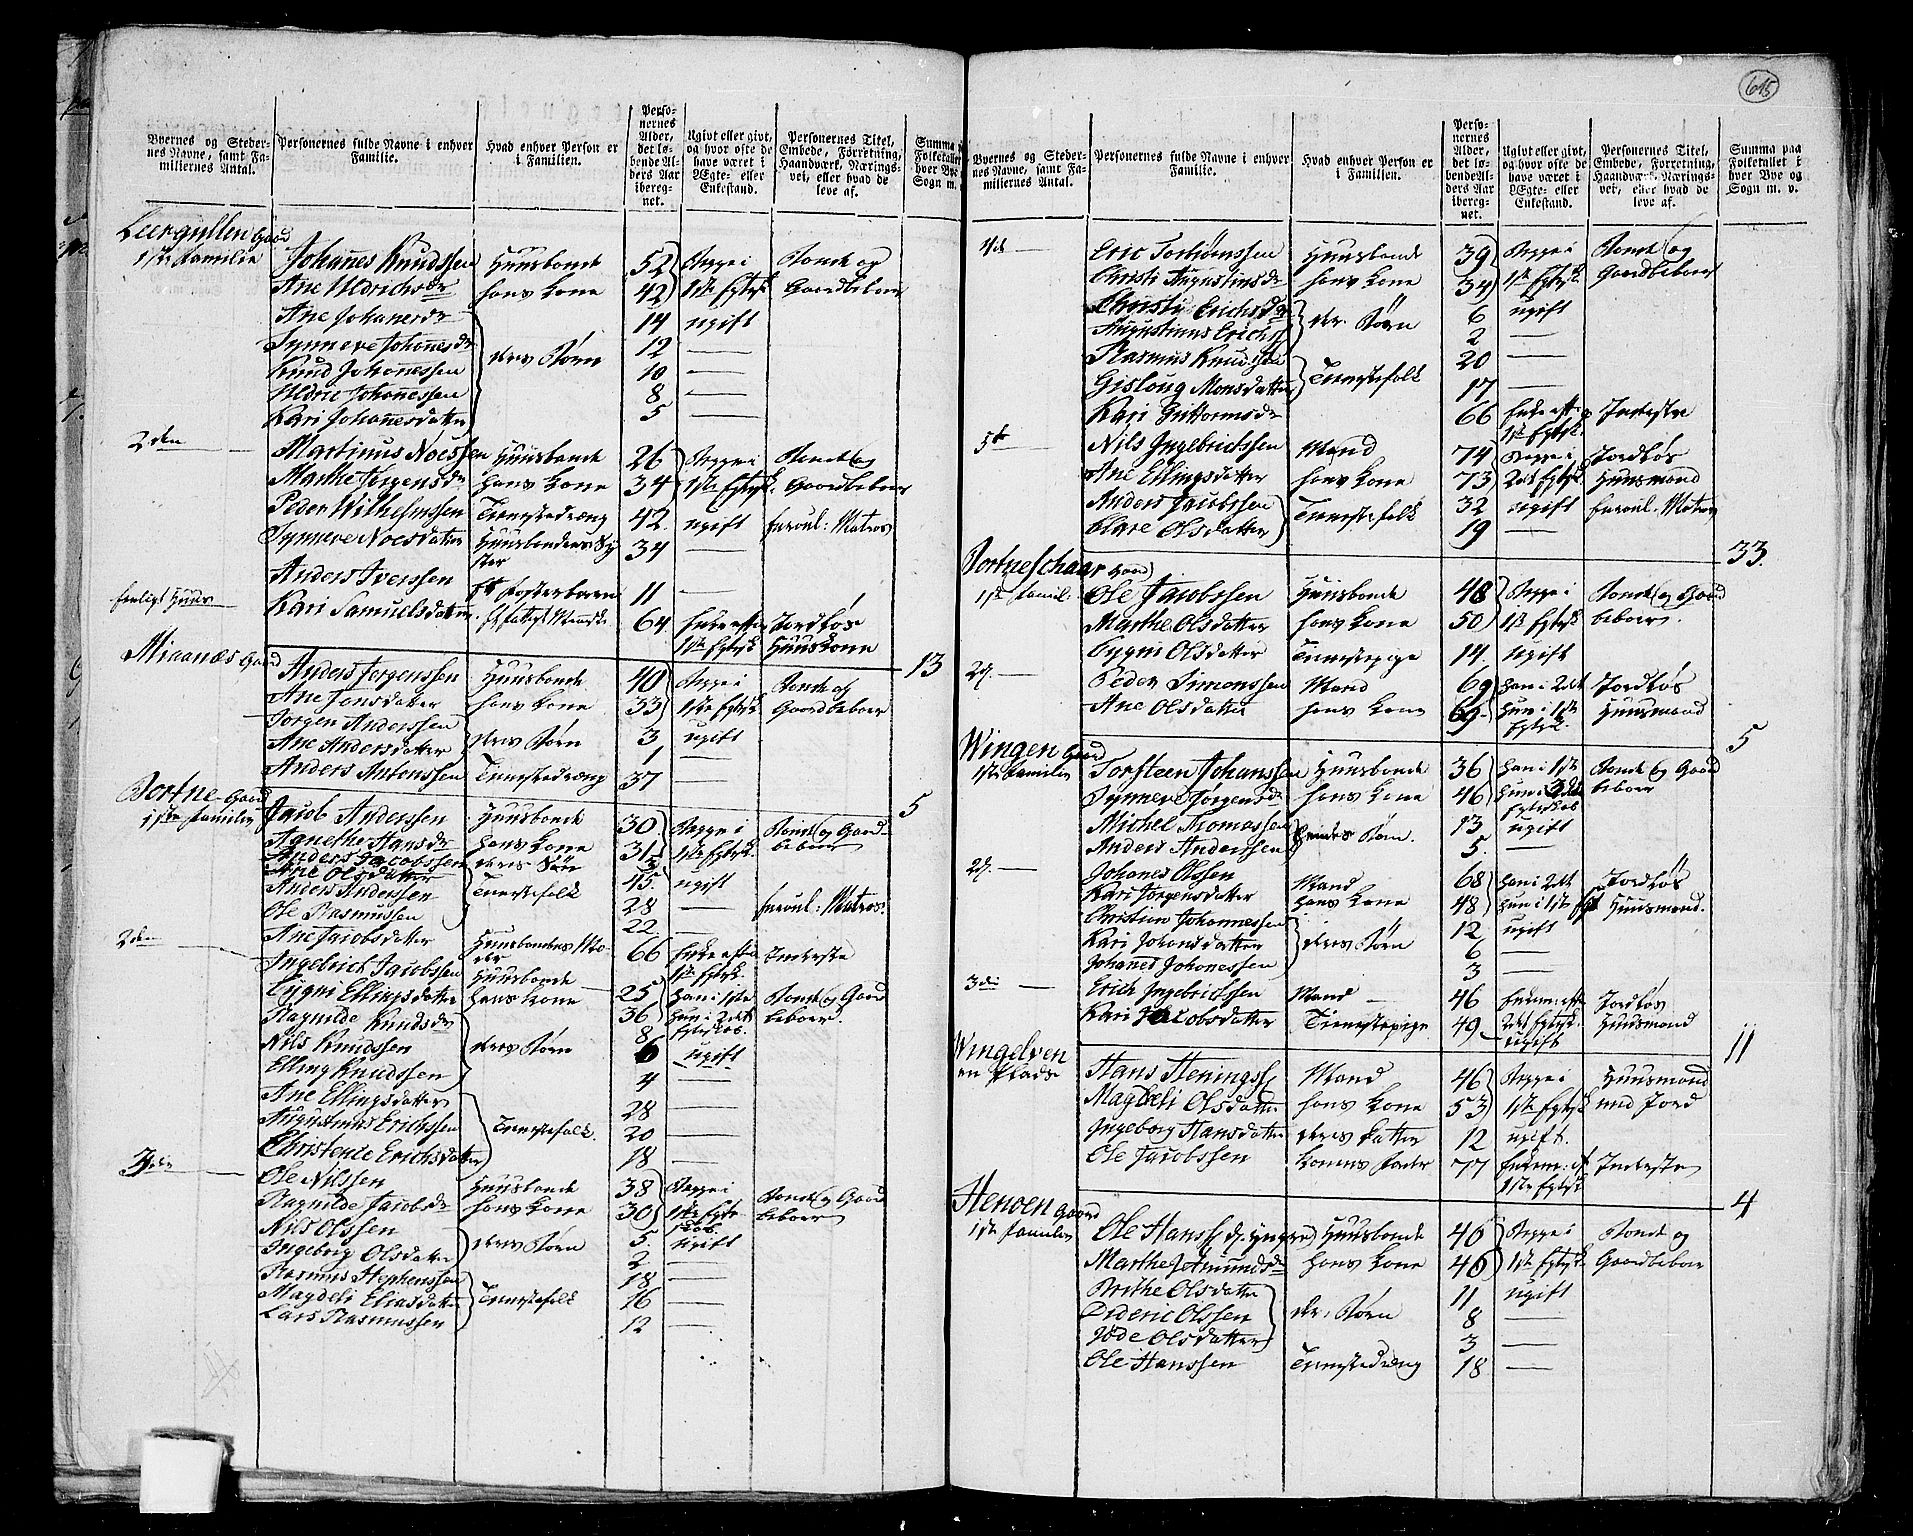 615
Byernes og Steder-
nes Navne, samt Fa-
miliernes Antal.
Personernes fulde Navne i enhver
Familie.
Hvad enhver Person er
i Familien.
Perso-
nernes
Alder,
det lø-
bende Al-
ders Aar
ibereg-
net.
Ugivt eller givt,
og hvor ofte de
have været i
Ægte- eller
Enkestand.
Personernes Titel,
Embede, Forretning,
Haandværk, Nærings-
vei, eller hvad de
leve af.
Summa
Folketallet
hver Bye
Sogn m.
Leergullen Gaard
1ste Familie Johanes Knudssen Huusbonde 52 Begge i Bonde og
Ane Uldrichsdr hans Kone 42 1ste Egtesk Gaardbeboer
Ane Johanesdr 14 ugift
Synneve Johanesdr deres Børn 12 —
Knud Johanessen 10 —
Uldric Johanessen 8 —
Kari Johannesdatter 5 —
2den — Martinus Noessen Huusbonde 26 Begge i Bonde og
Marthe Jørgensdr hans Kone 34 1ste Egtesk. Gaardbeboer
Peder Wilhelmssen Tienestedræng 42 ugift Enroul: Matros
Synneve Noesdatter Huusbondens Sy-
ster 34 —
Anders Iverssen Et Fosterbarn 11 —
Fattigt Huus — Kari Samuelsdatter et fattigt Menneske 64 Enke efter Jordløs
1ste Egtesk Huuskone
13
Miaanæs Gaard
Anders Jørgenssen Huusbonde 40 Begge i Bonde og
Ane Jonsdatter hans Kone 33 1ste Egtesk Gaardbeboer
Jørgen Anderssen deres Børn 3 ugift
Ane Andersdatter 1 —
Anders Antonssen Tienestedræng 37 —
5
Bortne Gaard
1ste Familie Jacob Anderssen Huusbonde 30 Begge i Bonde og Gaard-
Agnethe Hansdr hans Kone 31 1ste Egtesk. beboer
Anders Jacobssen deres Søn
Ane Olsdatter 45 ugift
Anders Anderssen Tienestefolk 28 — Enroul: Matros
Ole Rasmussen 22 —
Ane Jacobsdatter Huusbondens Mo-
der 66 Enke efter Inderste
1ste Egtesk.
2den — Ingebrict Jacobssen Huusbonde 25 han i 1ste Bonde og Gaard
Cygni Ellingsdatter hans Kone 36 hun i 2det beboer.
Egtesk.
Ragnilde Knudsdr 8
Nils Knudssen deres Børn 6 ugift
Elling Knudssen 4 —
Ane Ellingsdatter 28 —
Augustinus Erichssen Tienestefolk. 20 —
Christence Erichsdatter 18 —
3die — Ole Nilssen Huusbonde 38 Begge i Bonde og Gaard
Ragnilde Jacobsdr hans Kone 30 1ste Egte- beboer
skab.
Nils Olssen deres Børn 5 ugift
Ingeborg Olsdatter 2 —
Rasmus Stephenssen 18 —
Magdeli Eliasdatter Tienestefolk 16 —
Lars Rasmussen 12 —
Byernes og Steder-
nes Navne, samt Fa-
miliernes Antal.
Personernes fulde Navne i enhver
Familie.
Hvad enhver Person er
i Familien.
Perso-
nernes
Alder,
det lø-
bende Al-
ders Aar
ibereg-
net.
Ugivt eller givt,
og hvor ofte de
have været i
Ægte- eller
Enkestand.
Personernes Titel,
Embede, Forretning,
Haandværk, Nærings-
vei, eller hvad de
leve af.
Summa paa
Folketallet i
hver Bye og
Sogn m. v.
4de — Eric Torbiönssen Huusbonde 39 Begge i Bonde og
Christi Augustinsdr hans Kone 34 1st Egtesk. Gaardbeboer
Christi Erichsdr der. Börn 6 ugift
Augustinus Erichs 2 —
Rasmus Knudssen Tienestefolk 20 —
Gislöug Monsdatter 17 —
Kari Guttormsdr 66 Enke efter Inderste
1st Egtesk.
5te — Nils Ingebrictssen Mand 74 Begge i Jordløs
Ane Ellingsdatter hans Kone 73 2det Egtesk Huusmand
Anders Jacobssen Tienestefolk 32 ugift Enroul: Matros
Clare Olsdatter 19 —
33.
Bortneschaar Gaard
1ste Famil: Ole Jacobssen Huusbonde 48 Begge i Bonde og Gaard
Marthe Olsdatter hans Kone 50 1st Egtesk beboer.
Cygni Olsdatter Tienestepige 14. ugift
2d. — Peder Simonssen Mand 69 han i 2det Jordløs
Ane Olsdatter hans Kone 69 hun i 1ste Huusmand
Egtesk.
5
Wingen Gaard
1ste Familie Torsteen Johanssen Huusbonde 36 han i 1ste Bonde og Gaard
Synneve Jørgensdr hans Kone 46 hun i 2det beboer
Egteskab
Michel Thomassen hendes Børn. 13 ugift
Anders Anderssen 5. —
2d. — Johanes Olssen Mand 68 han i 2det Jordløs
Kari Jørgensdatter hans Kone 48 hun i 1ste Egt Huusmand.
Christian Johannessen 12 ugift
Kari Johansdatter deres Børn 6 —
Johanes Johanessen 3 —
3die — Erich Ingebrictssen Mand — 46 Enkem: efter Jordløs
2det Egtesk. Huusmand
Kari Jacobsdatter Tienestepige 49 ugift
11
Wingelven
en Plads Hans Henings Mand 46 Begge i Huusmand
Magdeli Olsdatter hans Kone 53 1ste Egtesk med Jord
Ingeborg Hansdatter deres Datter 12 ugift.
Ole Jacobssen Konens Fader 77 Enkem: ef Inderste
1ste Egtesk
4
Henøen Gaard
1ste Familie Ole Hanss d. yngre Huusbonde 46 Begge i Bonde og
Marthe Amundsdr hans Kone 46 1ste Egtesk Gaardbeboer
Birthe Olsdatter 11 ugift
Dideric Olssen der: Börn 8 —
Jöde Olsdatter 3 —
Ole Hanssen Tienestedræng 18 —